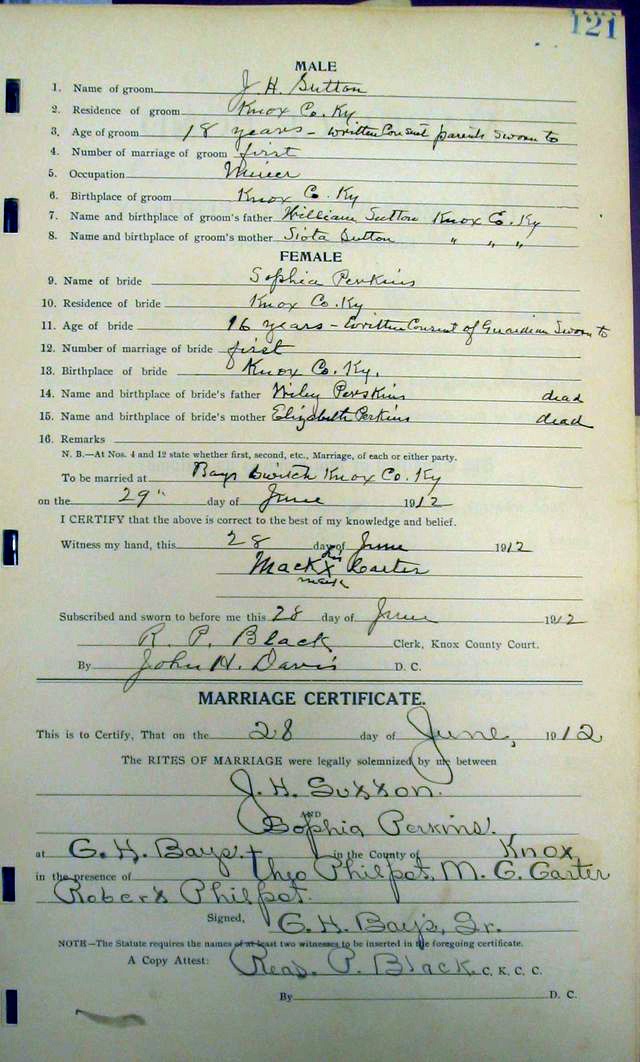 121
MALE
1. Name of groom J. H. Sutton
2. Residence of groom Knox Co. Ky
3. Age of groom 18 years - written Consent parents sworn to
4. Number of marriage of groom first
5. Occupation Miner
6. Birthplace of groom Knox Co. Ky
7. Name and birthplace of groom's father William Sutton Knox Co. Ky
8. Name and birthplace of groom's mother Siota Sutton " " "
FEMALE
9. Name of bride Sophia Perkins
10. Residence of bride Knox Co. Ky
11. Age of bride 16 years - Written Consent of Guardian Sworn to
12. Number of marriage of bride first
13. Birthplace of bride Knox Co. Ky.
14. Name and birthplace of bride's father Wiley Perskins dead
15. Name and birthplace of bride's mother Elizabeth Perkins dead
16. Remarks
N. B.—At Nos. 4 and 12 state whether first, second, etc., Marriage, of each or either party.
To be married at Bays Switch Knox Co. Ky
on the 29" day of June 1912
I CERTIFY that the above is correct to the best of my knowledge and belief.
Witness my hand, this 28 day of June 1912
his
Mack X Carter
mark
Subscribed and sworn to before me this 28 day of June 1912
R. P. Black Clerk, Knox County Court.
By John H. Davis D. C.
MARRIAGE CERTIFICATE.
This is to Certify, That on the 28 day of June, 1912
The RITES OF MARRIAGE were legally solemnized by me between
J. H. Suxxon.
AND
Sophia Perkins.
at G. H. Bays. in the County of Knox
in the presence of Theo Philpot, M. G. Garter
Roberx Philpot.
Signed, G. H. Bays, Sr.
NOTE—The Statute requires the names of at least two witnesses to be inserted in the foregoing certificate.
A Copy Attest: Read. P. Black C. K. C. C.
By D. C.